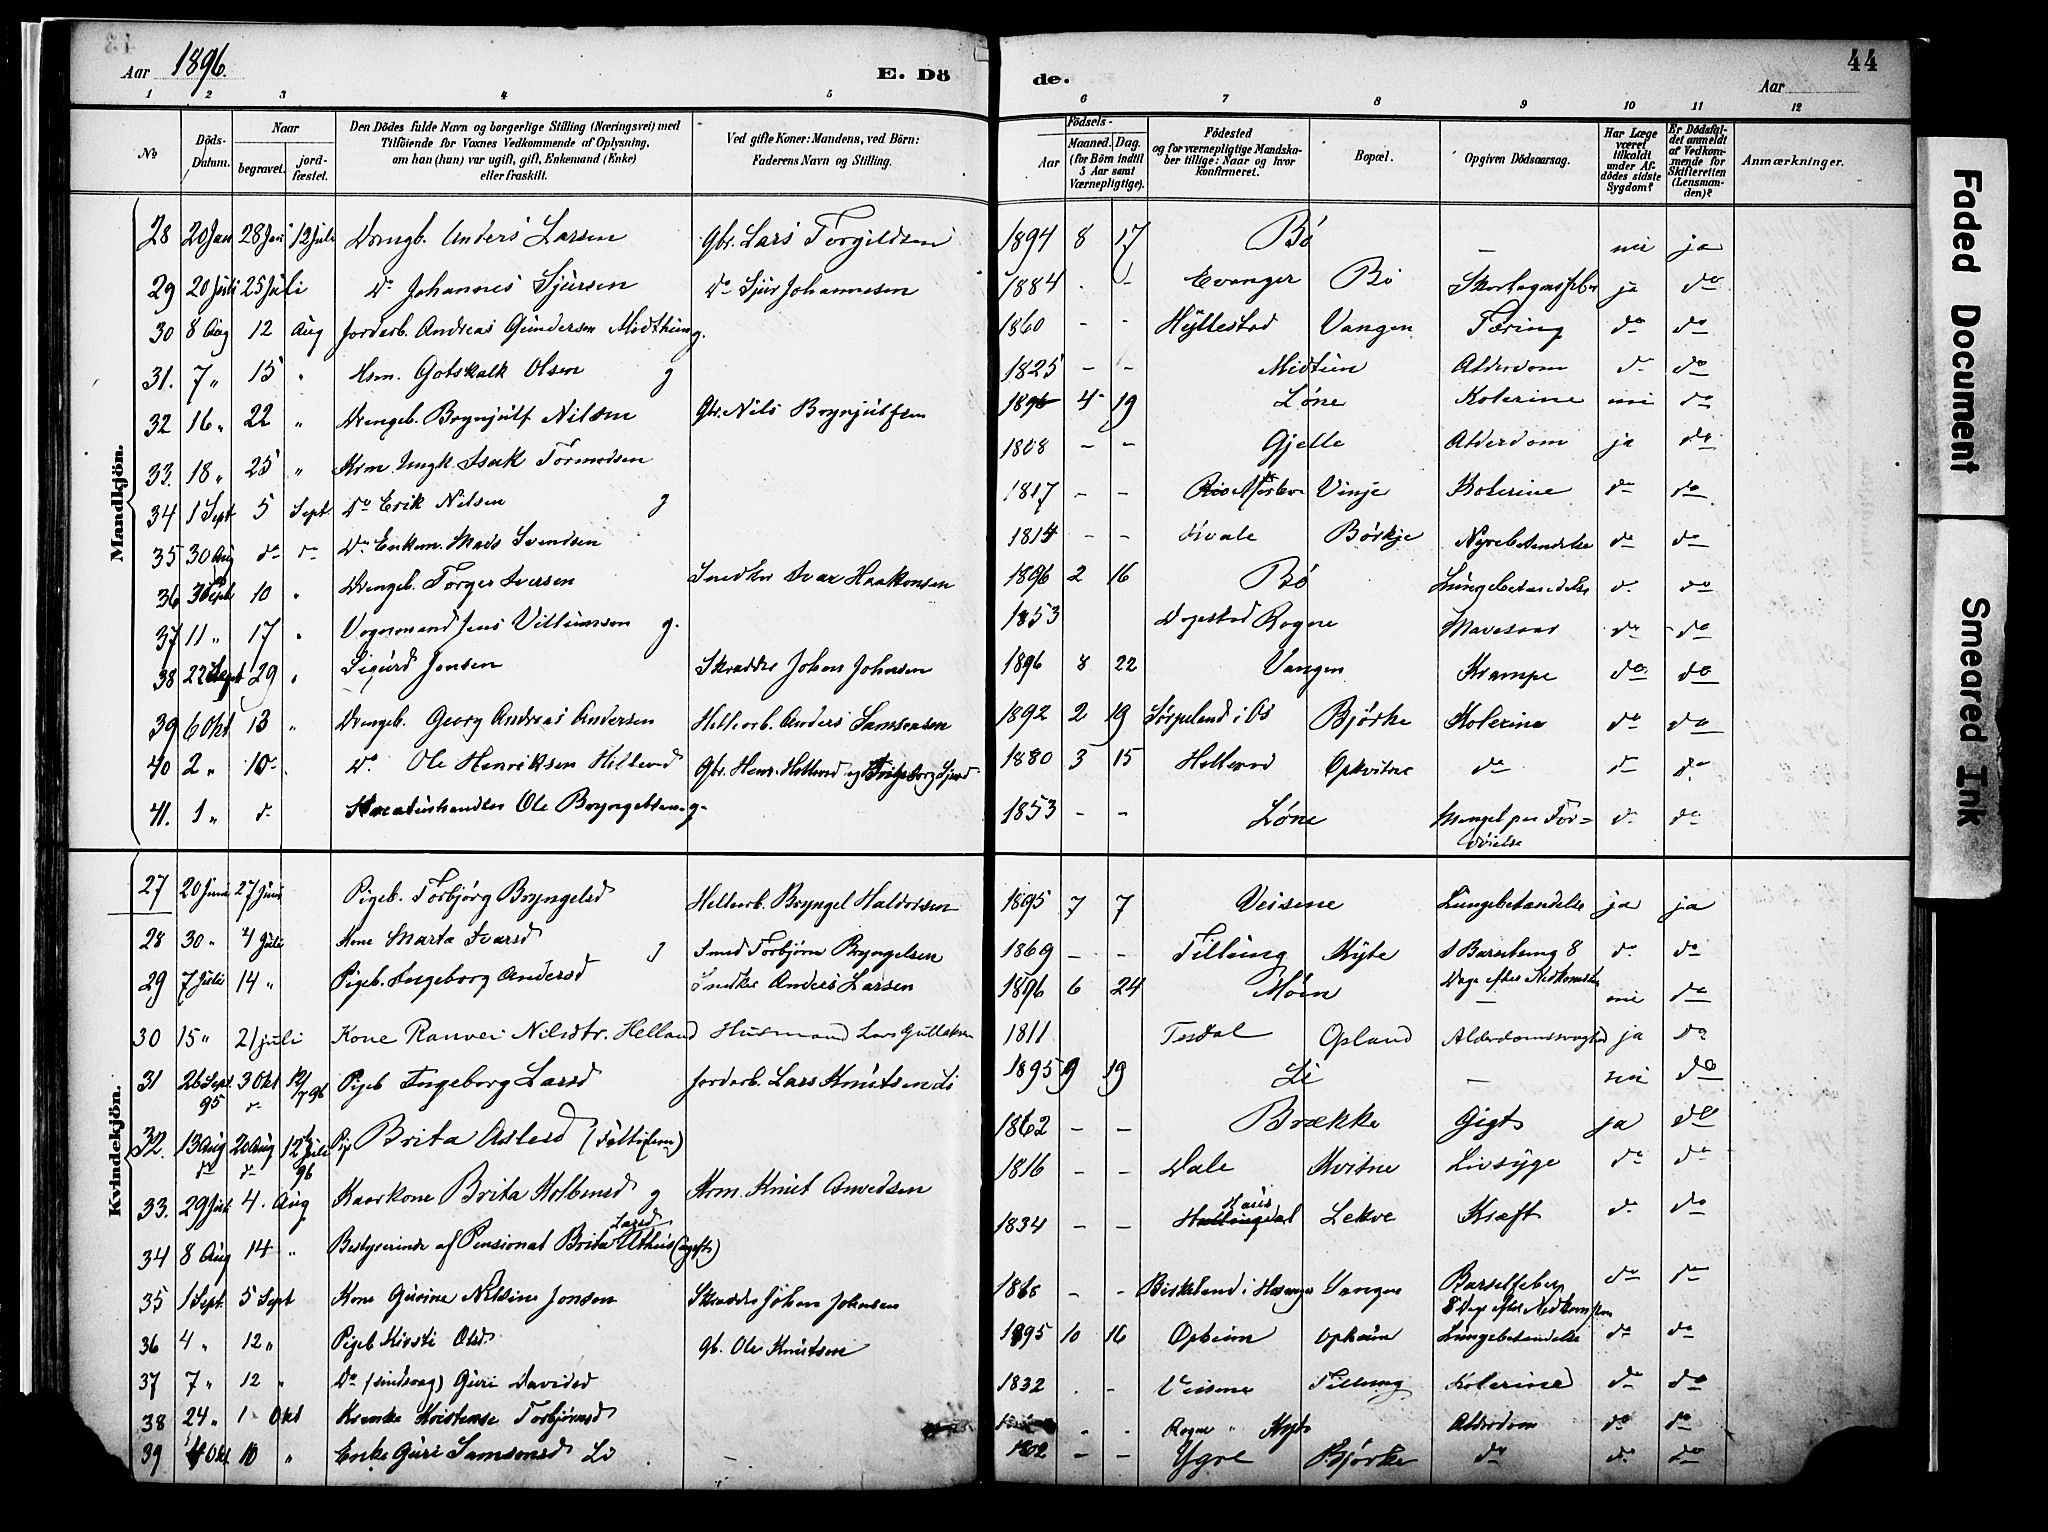 Aar 1896.
E. Dö
de.
Aar
44
1 2 3 4 5 6 7 8 9 10 11 12
No
Döds-Datum.
Naar
begravet.
jord-fæstet.
Den Dödes fulde Navn og borgerlige Stilling (Næringsvei) med
Tilföiende for Voxnes Vedkommende af Oplysning,
om han (hun) var ugift, gift, Enkemand (Enke)
eller fraskilt.
Ved gifte Koner: Mandens, ved Börn:
Faderens Navn og Stilling.
Födsels-
Aar
Maaned. Dag.
(for Börn indtil
5 Aar samt
Værnepligtige).
Födested
og for værnepligtige Mandska-
ber tillige: Naar og hvor
konfirmeret.
Bopæl.
Opgiven Dödsaarsag.
Har Læge
været
tilkaldt
under Af-
dödes sidste
Sygdom?
Er Dödsfal-
det anmeldt
af Vedkom-
mende for
Skifteretten
(Lensman-
den)?
Anmærkninger.
Mandkjön.
28 20 Jan 28 Jan 12 Juli Drengb. Anders Larsen Gbr. Lars Torgildsen 1894 8 17 Bö — nei ja
29 20 Juli 25 Juli Do Johannes Sjursen Do Sjur Johannesen 1884 - - Evanger Bö Skarlagensfeber ja do
30 8 Aug 12 Aug Jordarb. Andreas Gundersen Midthun g. 1860 - - Hyllestad Vangen Tæring do do
31. 7 " 15 " Hsm. Gotskalk Olsen g 1825 - - Midtun Alderdom do do
32 16 " 22 " Drengeb. Brynjulf Nilsen Gbr. Nils Brynjulfsen 1896 4 19 Löne Kolerine nei do
33. 18 " 25 " Krm. Ungk. Isak Tormodsen 1808 - - Gjelle Alderdom ja do
34 1 Sept 5 Sept. Do Erik Nilsen g 1817 - - Vinje Kolerine do do
35 30 Aug do do Do Enkem. Mads Svendsen 1814 - - Kvale Börkje Nyrebetændelse do do
36 3 Sept 10 " Drengeb. Torger Iversen Ivar Haakonsen 1896 2 16 Bö Lungebetændelse do do
37 11 " 17 " Vognmand Jens Villumsen g. 1853 Dagestad Rogne Mavesaar do do
38 22 Sept 29 " Sigurd Jensen Skrædder Johan Johnsen 1896 8 22 Vangen Krampe do do
39 6 Okt 13 " Drengeb. Georg Andreas Andersen Hellearb. Anders Samsonsen 1892 2 19 i Os Björke Kolerine do do
40 2 " 10 " Do Ole Henriksen Hellerud Gbr. Henr. Hellerud og 1880 3 15 Hellerud Opkvitne do do do
41. 1 " do Ole Bryngelsen g. 1853 - - Löne Mangel paa For=
döielse do do
Kvindekjön.
27 20 Juni 27 Juni Pigeb. Torbjörg Bryngelsd Hellearb. Bryngel Haldorsen 1895 7 7 Veisene Lungebetændelse ja ja
28 30 " 4 Juli Kone Marta Ivarsd g Smed Torbjörn Bryngelsen 1869 - - Tillung Kyte I Barselseng 8
Dage efter Nedkomsten do do
29 7 Juli 14 " Pigeb. Ingeborg Andersd Snedker Anders Larsen 1896 6 24 Möen — nei do
30 15 " 21 juli Kone Ranvei Nilsdtr. Helland Husmand Lars Gullaksen 1811 Tesdal Opland Alderdomssvaghed ja do
31 26 Sept. 95 3 Okt do 12/7 96 Pigeb Ingeborg Larsd Jordarb. Lars Knutsen Li 1895 9 19 Li — nei do
32. 13 Aug do 20 Aug do 12 Juli 96 Pig Brita Aslesd 1862 - - Brække Gigt ja do
33. 29 Juli 4. Aug Kaarkone Brita Kolbensd g Krm. Knut Anvedsen 1816 - - Dale Kvitne Livsyge do do
34 8 Aug 14 " Bestyrerinde af Pensionat Brita Larsd Uthus (ugift) 1834 - - Lekve Kræft do do
35 1 Sept. 5 Sept Kone Gurine Nilsine Jonsen Skrædder Johan Johnsen - - Birkeland i Vangen Barselfeber
8 Dage efter Nedkomsten do do
36 4 " 12 " Pigeb Kirsti Olsd gb. Ole Knutsen 1895 10 16 Opheim opheim Lungebetændelse do do
37 7 " 12 " Do (sindssvag) Guri Davidsd 1832 - - Veisene Tillung Kolerine do do
38 24 " 1 Okt Kristense Torbjörnsd Rogne " Alderdom do do
39 4 Okt 10 " Enke Guri Samsonsd Li 1802 - - Ygre Björke do do do
Faded Document
Smeared Ink